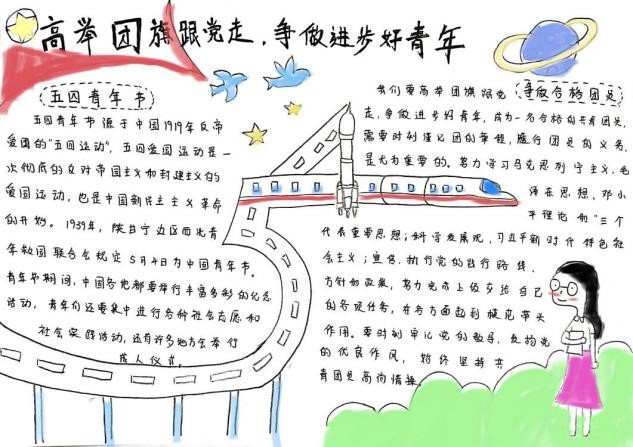 高举团旗跟党走，争做进步好青年
五四青年节
五四青年节源于中国1919年反帝
爱国的"五四运动"，五四爱国运动是一
次彻底的反对帝国主义和封建主义的
爱国运动，也是中国新民主主义革命
的开始。1939年，陕甘宁边区西北青
年救国联合会规定5月4日为中国青年节。
青年节期间，中国各地都要举行丰富多彩的纪念
活动，青年们还要集中进行各种社会志愿和
社会实践活动，还有许多地方会举行
成人仪式。
争做合格团员
我们要高举团旗跟党
走，争做进步好青年，成为一名合格的共青团员，
需要时刻谨记团的章程，履行团员的义务，
是尤为重要的。努力学习马克思列宁主义，毛
泽东思想、邓小
平理论和"三个
代表重要思想；科学发展观，习近平新时代特色社
会主义；宣传，执行党的践行路线、
方针和政策，努力完成上级交给自己
的各项任务，在各方面起到模范带头
作用。要时刻牢记党的教导，发扬党
的优良作风，始终坚持共
青团员高尚情操。